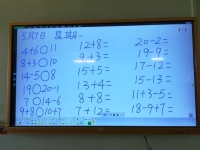 5月7日 星期一
4+6○11
8+3○10
14-5○8
19○20-1
7○14-6
9+8○10+7
12+8=
9+3=
15+5=
13+4=
8+8=
7+12=
20-2=
19-9=
17-12=
15-13=
11+3-5=
18-9+7=